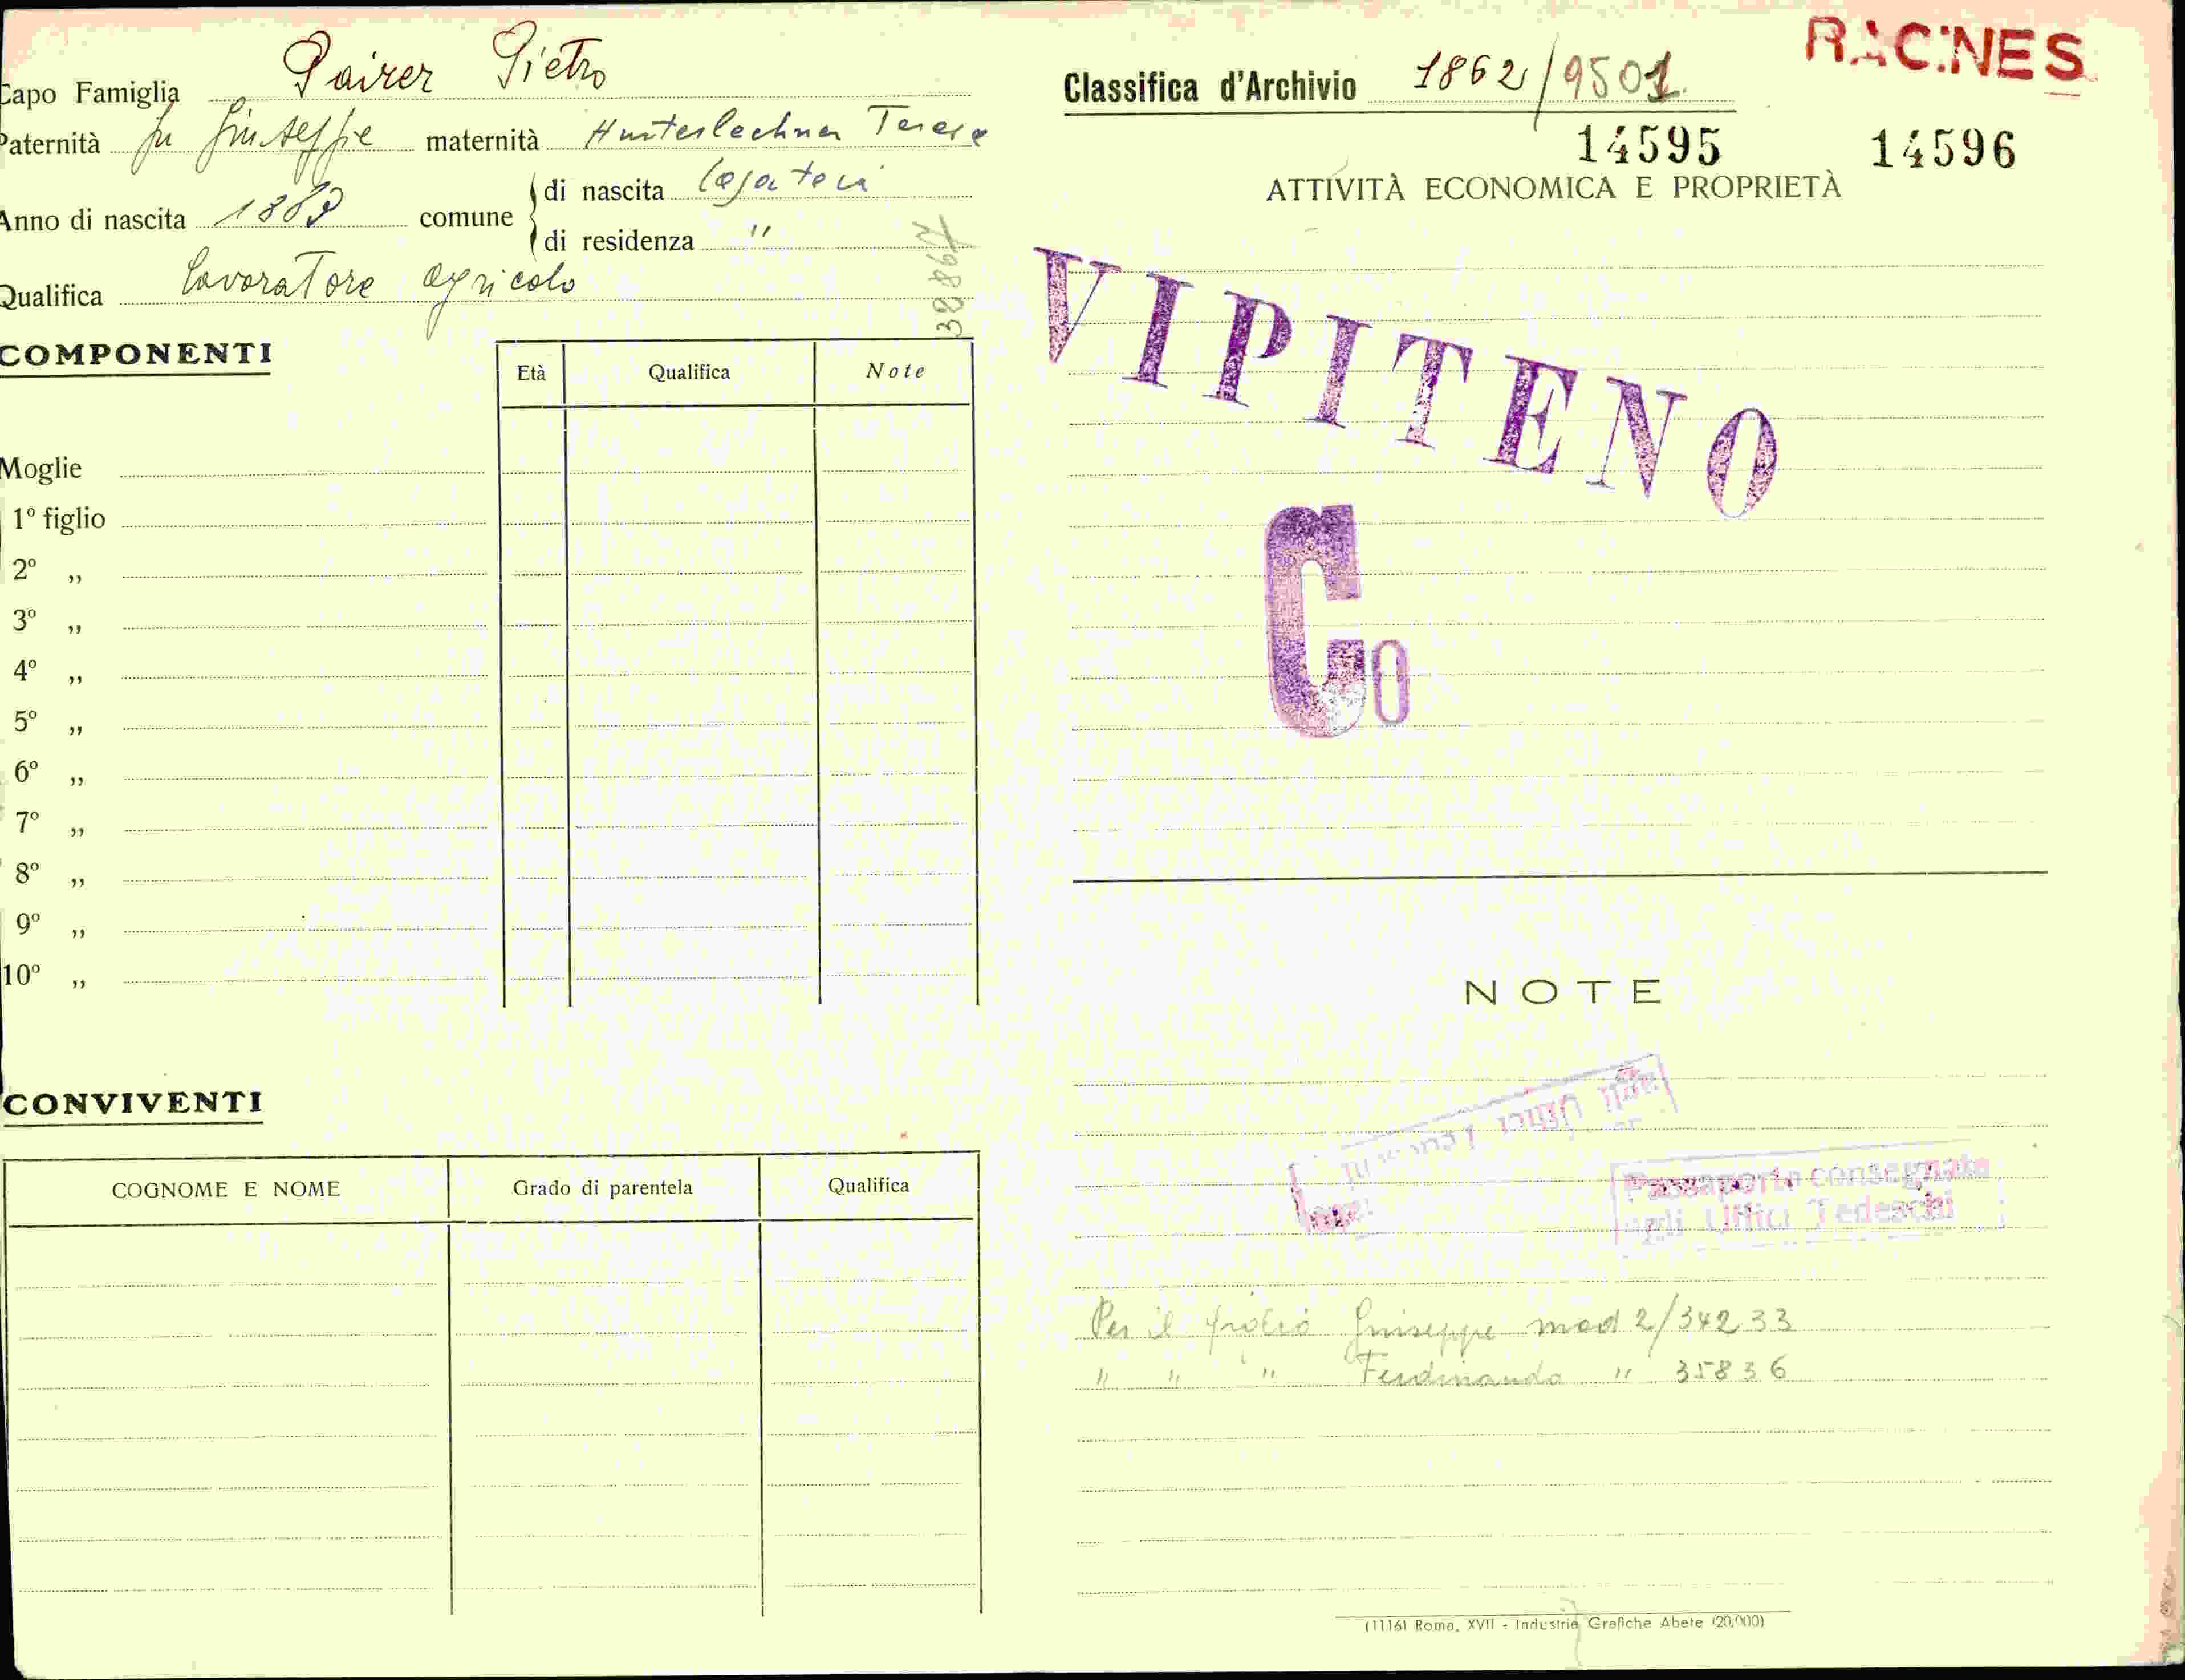 Capo Famiglia Pairer Pietro
Paternità fu Giuseppe maternità Hunterlechner Teresa
Anno di nascita comune di nascita Casateia
di residenza "
Qualifica lavoratore agricolo
COMPONENTI
Età Qualifica Note
Moglie
1º figlio
2º „
3º „
4º „
5º „
6º „
7º „
8º „
9º „
10º „
CONVIVENTI
COGNOME E NOME Grado di parentela Qualifica
RACINES
Classifica d'Archivio 1862/9501
14595 14596
ATTIVITÀ ECONOMICA E PROPRIETÀ
VIPITENO
Co
NOTE
Passaporto consegnato
agli Uffici Tedeschi
Per il figlio Giuseppe mod 2/34233
" " " Ferdinando " 35836
(1116) Roma, XVII - Industrie Grafiche Abete (20.000)